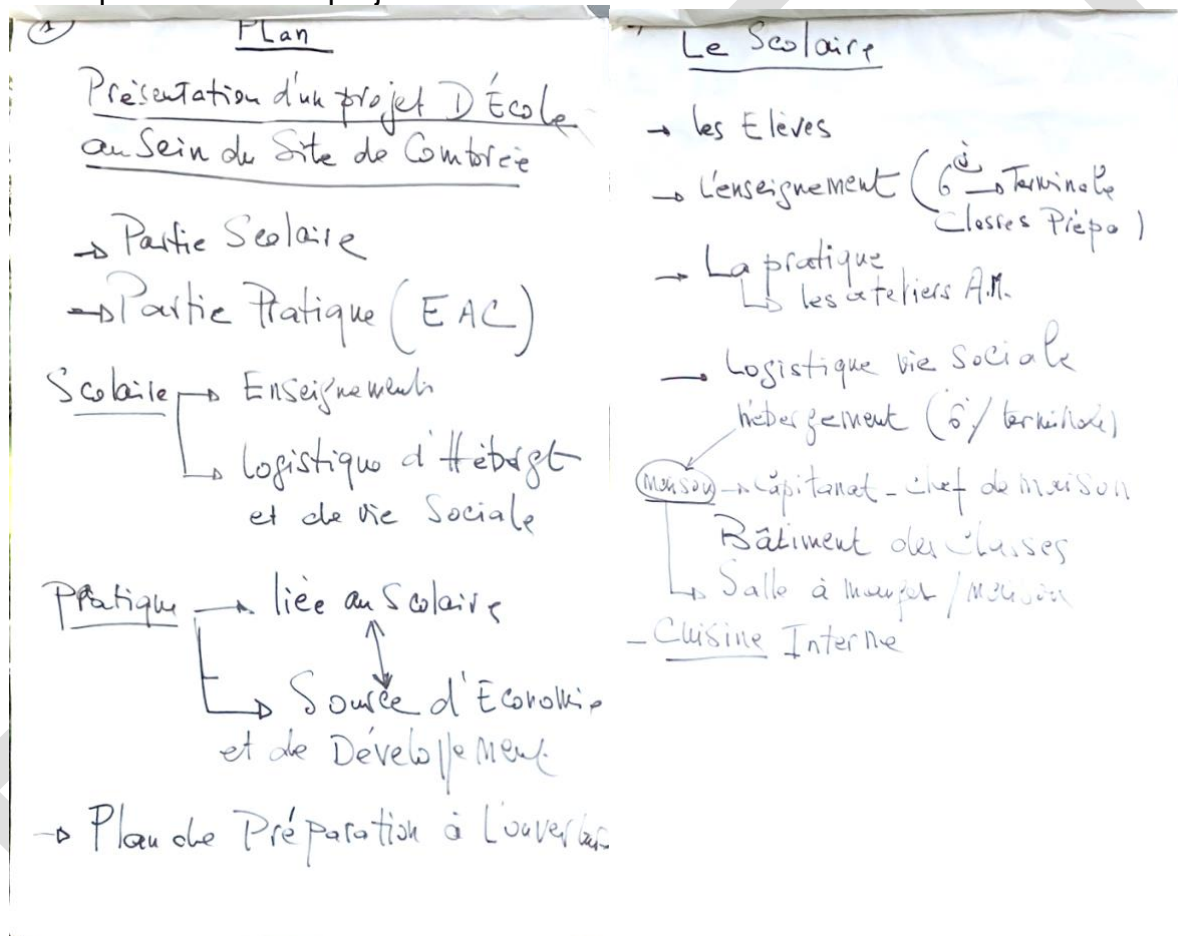 1
Plan
Présentation d'un projet D'École
au Sein du Site de Combrée
→ Partie Scolaire
→ Partie Pratique (EAC)
Scolaire → Enseignements
→ Logistique d'Hébergt
et de vie Sociale
Pratique → liée au Scolaire
→ Source d'Economie
et de Développement
→ Plan de Préparation à L'ouverture
Le Scolaire
→ les Elèves
→ L'enseignement (6è → Terminale
Classes Prépa)
→ La pratique
↳ les ateliers A.M.
→ Logistique vie Sociale
hébergement (6è/terminale)
Maison → Capitanat - chef de maison
Bâtiment des Classes
↳ Salle à manger / maison
- Cuisine Interne